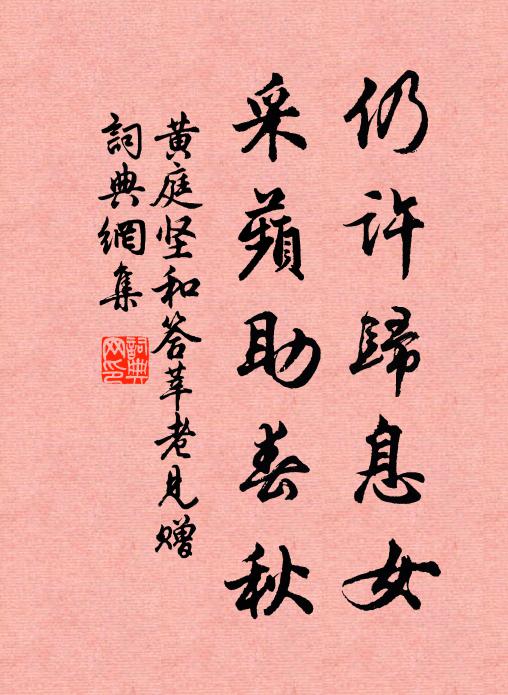 仍许歸息女
采蘋助春秋
黄庭坚和答莘老见赠
詞典網集
詞典网印